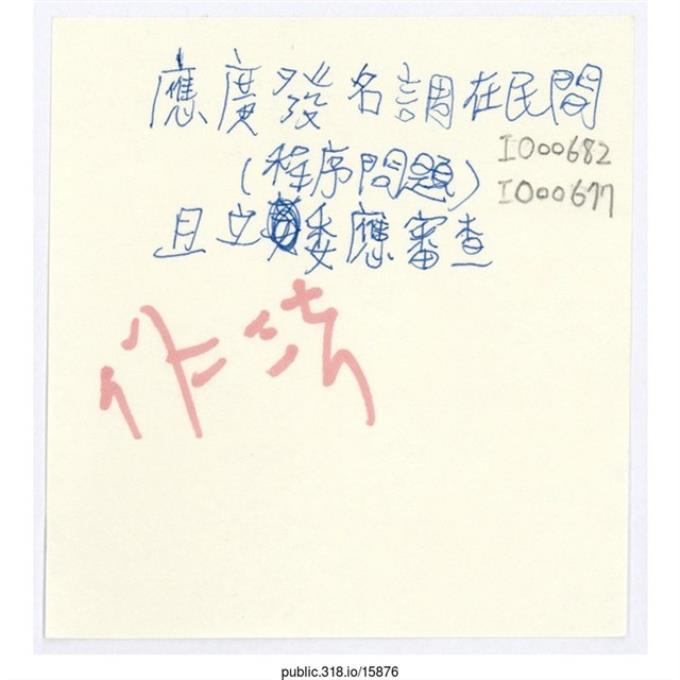 應廣發名調在民間
(程序問題)
I0000682
I0000677
且立委應審查
public.318.io/15876